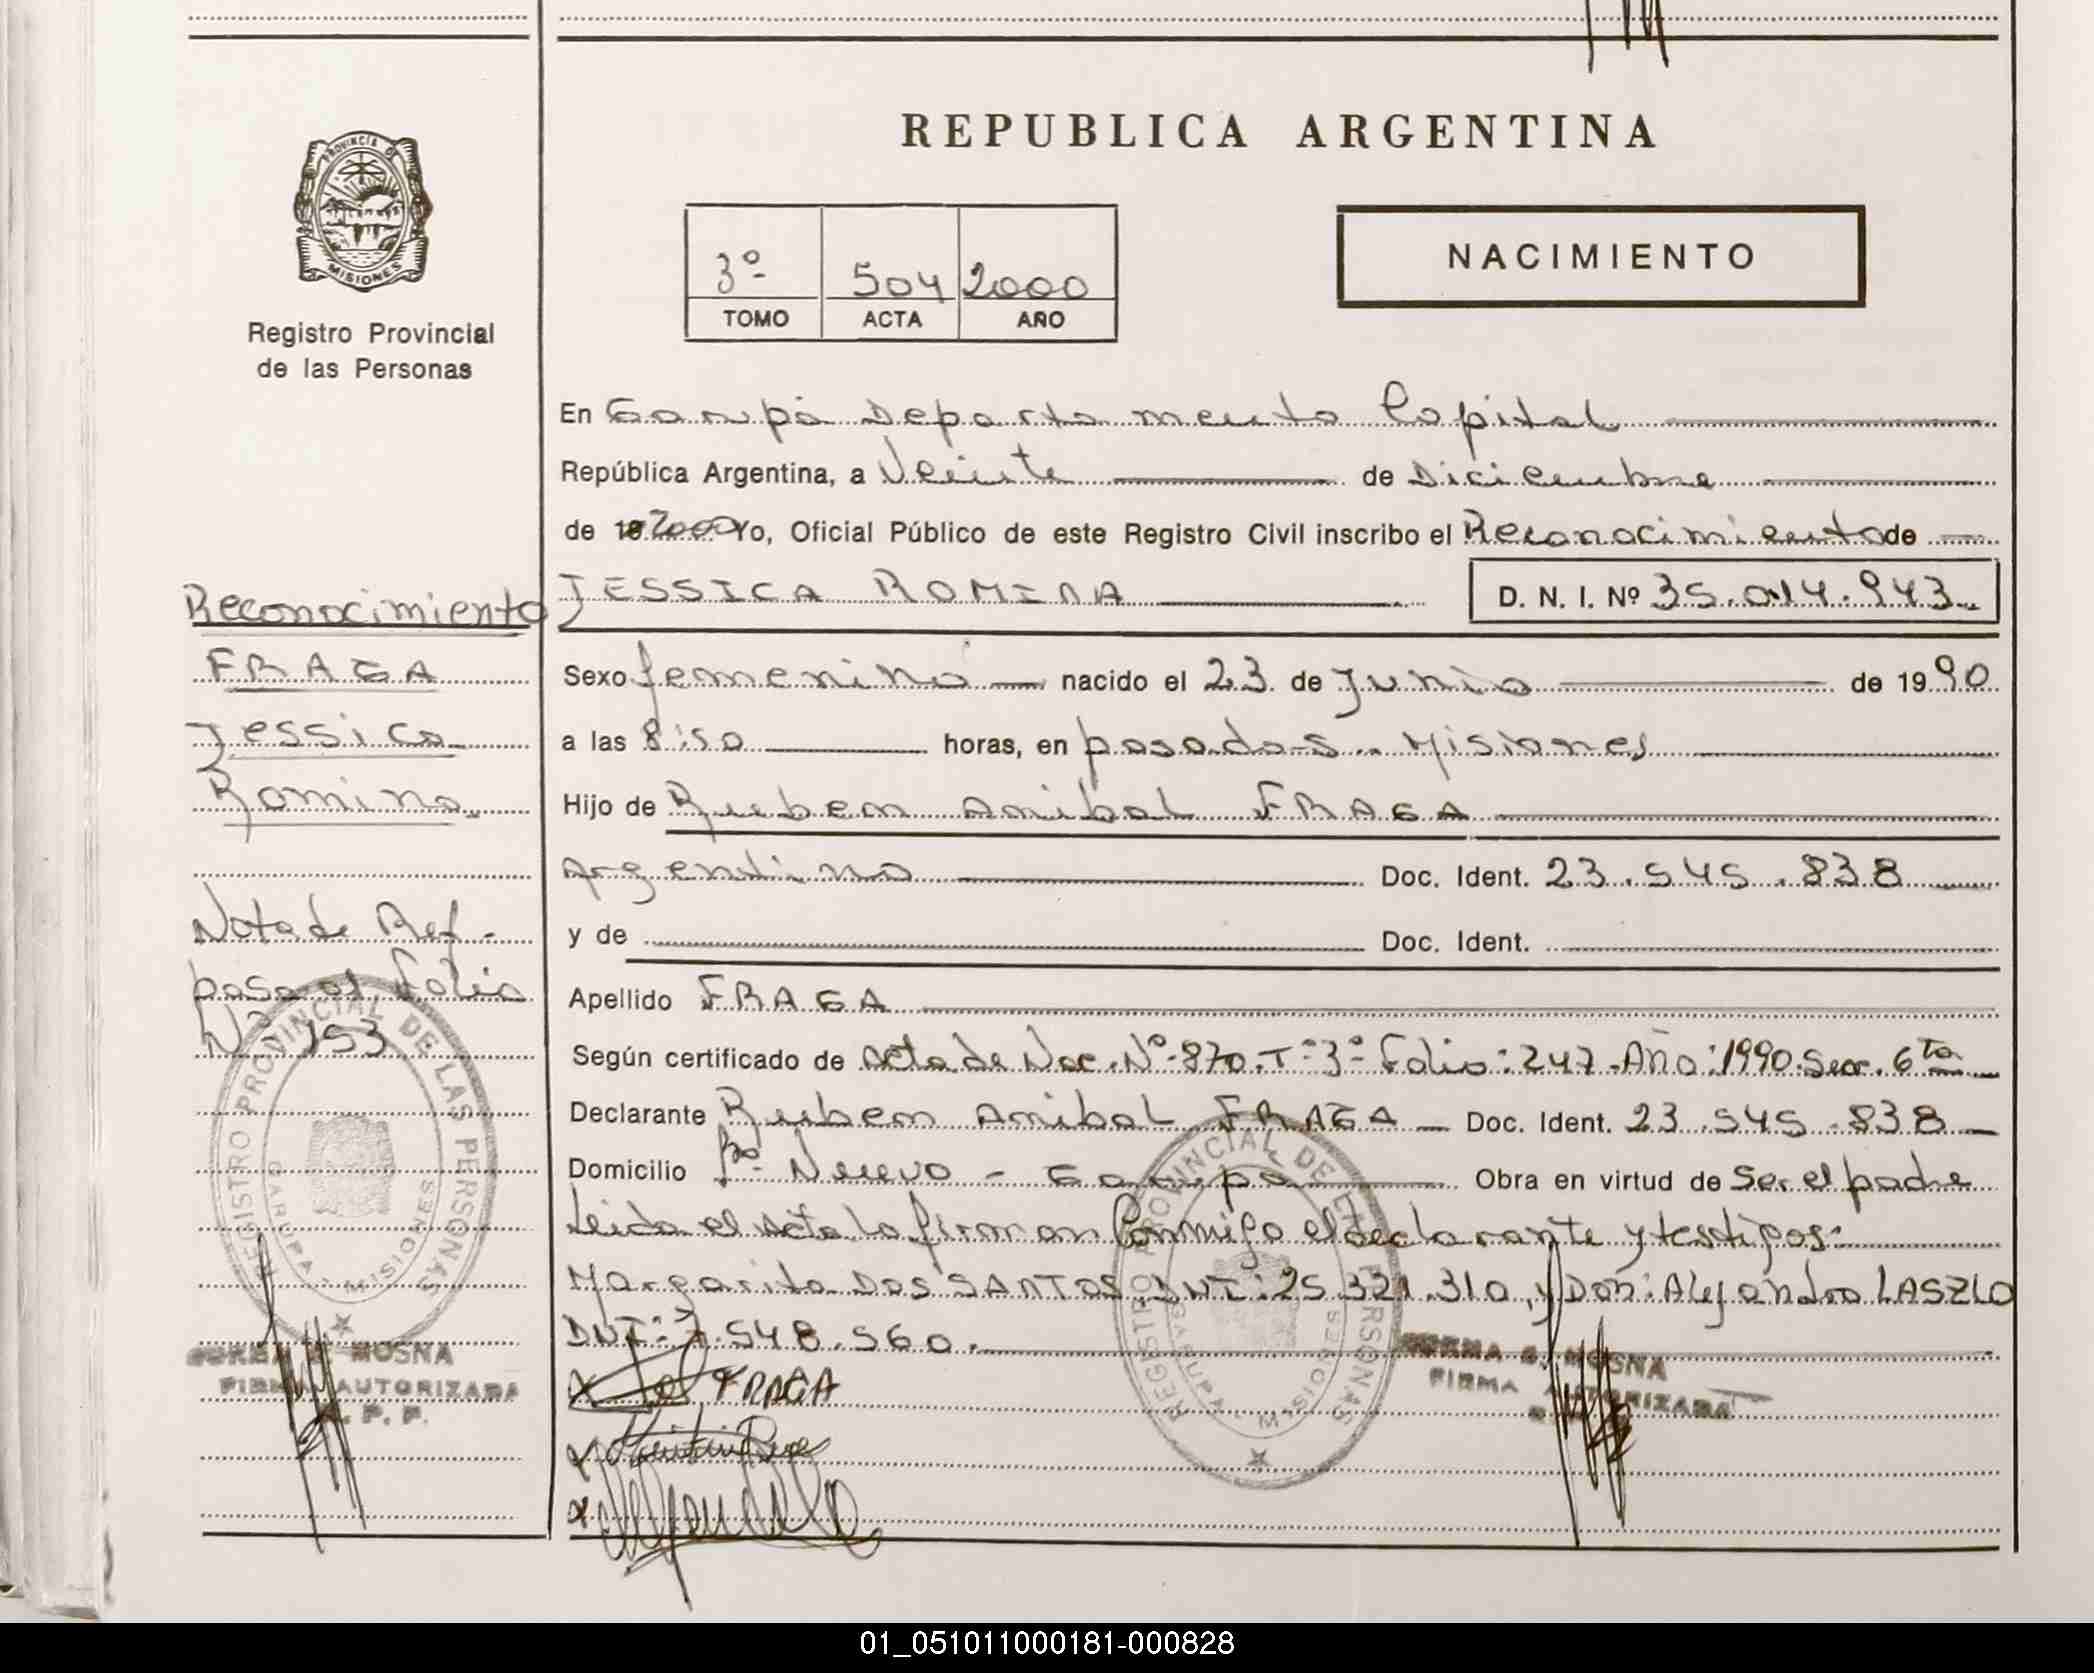 PROVINCIA DE
MISIONES
Registro Provincial
de las Personas
REPUBLICA ARGENTINA
3º 504 2000
TOMO ACTA AÑO
NACIMIENTO
En Garupá Departamento Capital
República Argentina, a Veinte de Diciembre
de 2000 Yo, Oficial Público de este Registro Civil inscribo el Reconocimiento de
JESSICA ROMINA D. N. I. Nº 35.014.943
Sexo femenino nacido el 23 de Junio de 1990
a las 8:50 horas, en posadas - Misiones
Hijo de Ruben Anibal FRAGA
Argentino Doc. Ident. 23.545.838
y de Doc. Ident.
Apellido FRAGA
Según certificado de Acta de Nac. Nº 870. Tº 3º Folio: 247. Año: 1990. Secc. 6ta
Declarante Ruben Anibal FRAGA Doc. Ident. 23.545.838
Domicilio Bº Nuevo - Garupa Obra en virtud de Ser el padre
Leida el Acta la firman Conmigo el declarante y testigos:
Margarita DOS SANTOS. DNI: 25.321.310, y Don: Alejandro LASZLO
DNI: 7.548.560.
FRAGA
Reconocimiento
FRAGA
Jessica
Romina
Nota de Ref.
pasa al Folio
Nº 153
REGISTRO PROVINCIAL DE LAS PERSONAS
GARUPA - MISIONES
MOSNA
FIRMA AUTORIZADA
R. P. P.
REGISTRO PROVINCIAL DE LAS PERSONAS
GARUPA - MISIONES
NORMA G. MOSNA
FIRMA AUTORIZADA
01_051011000181-000828